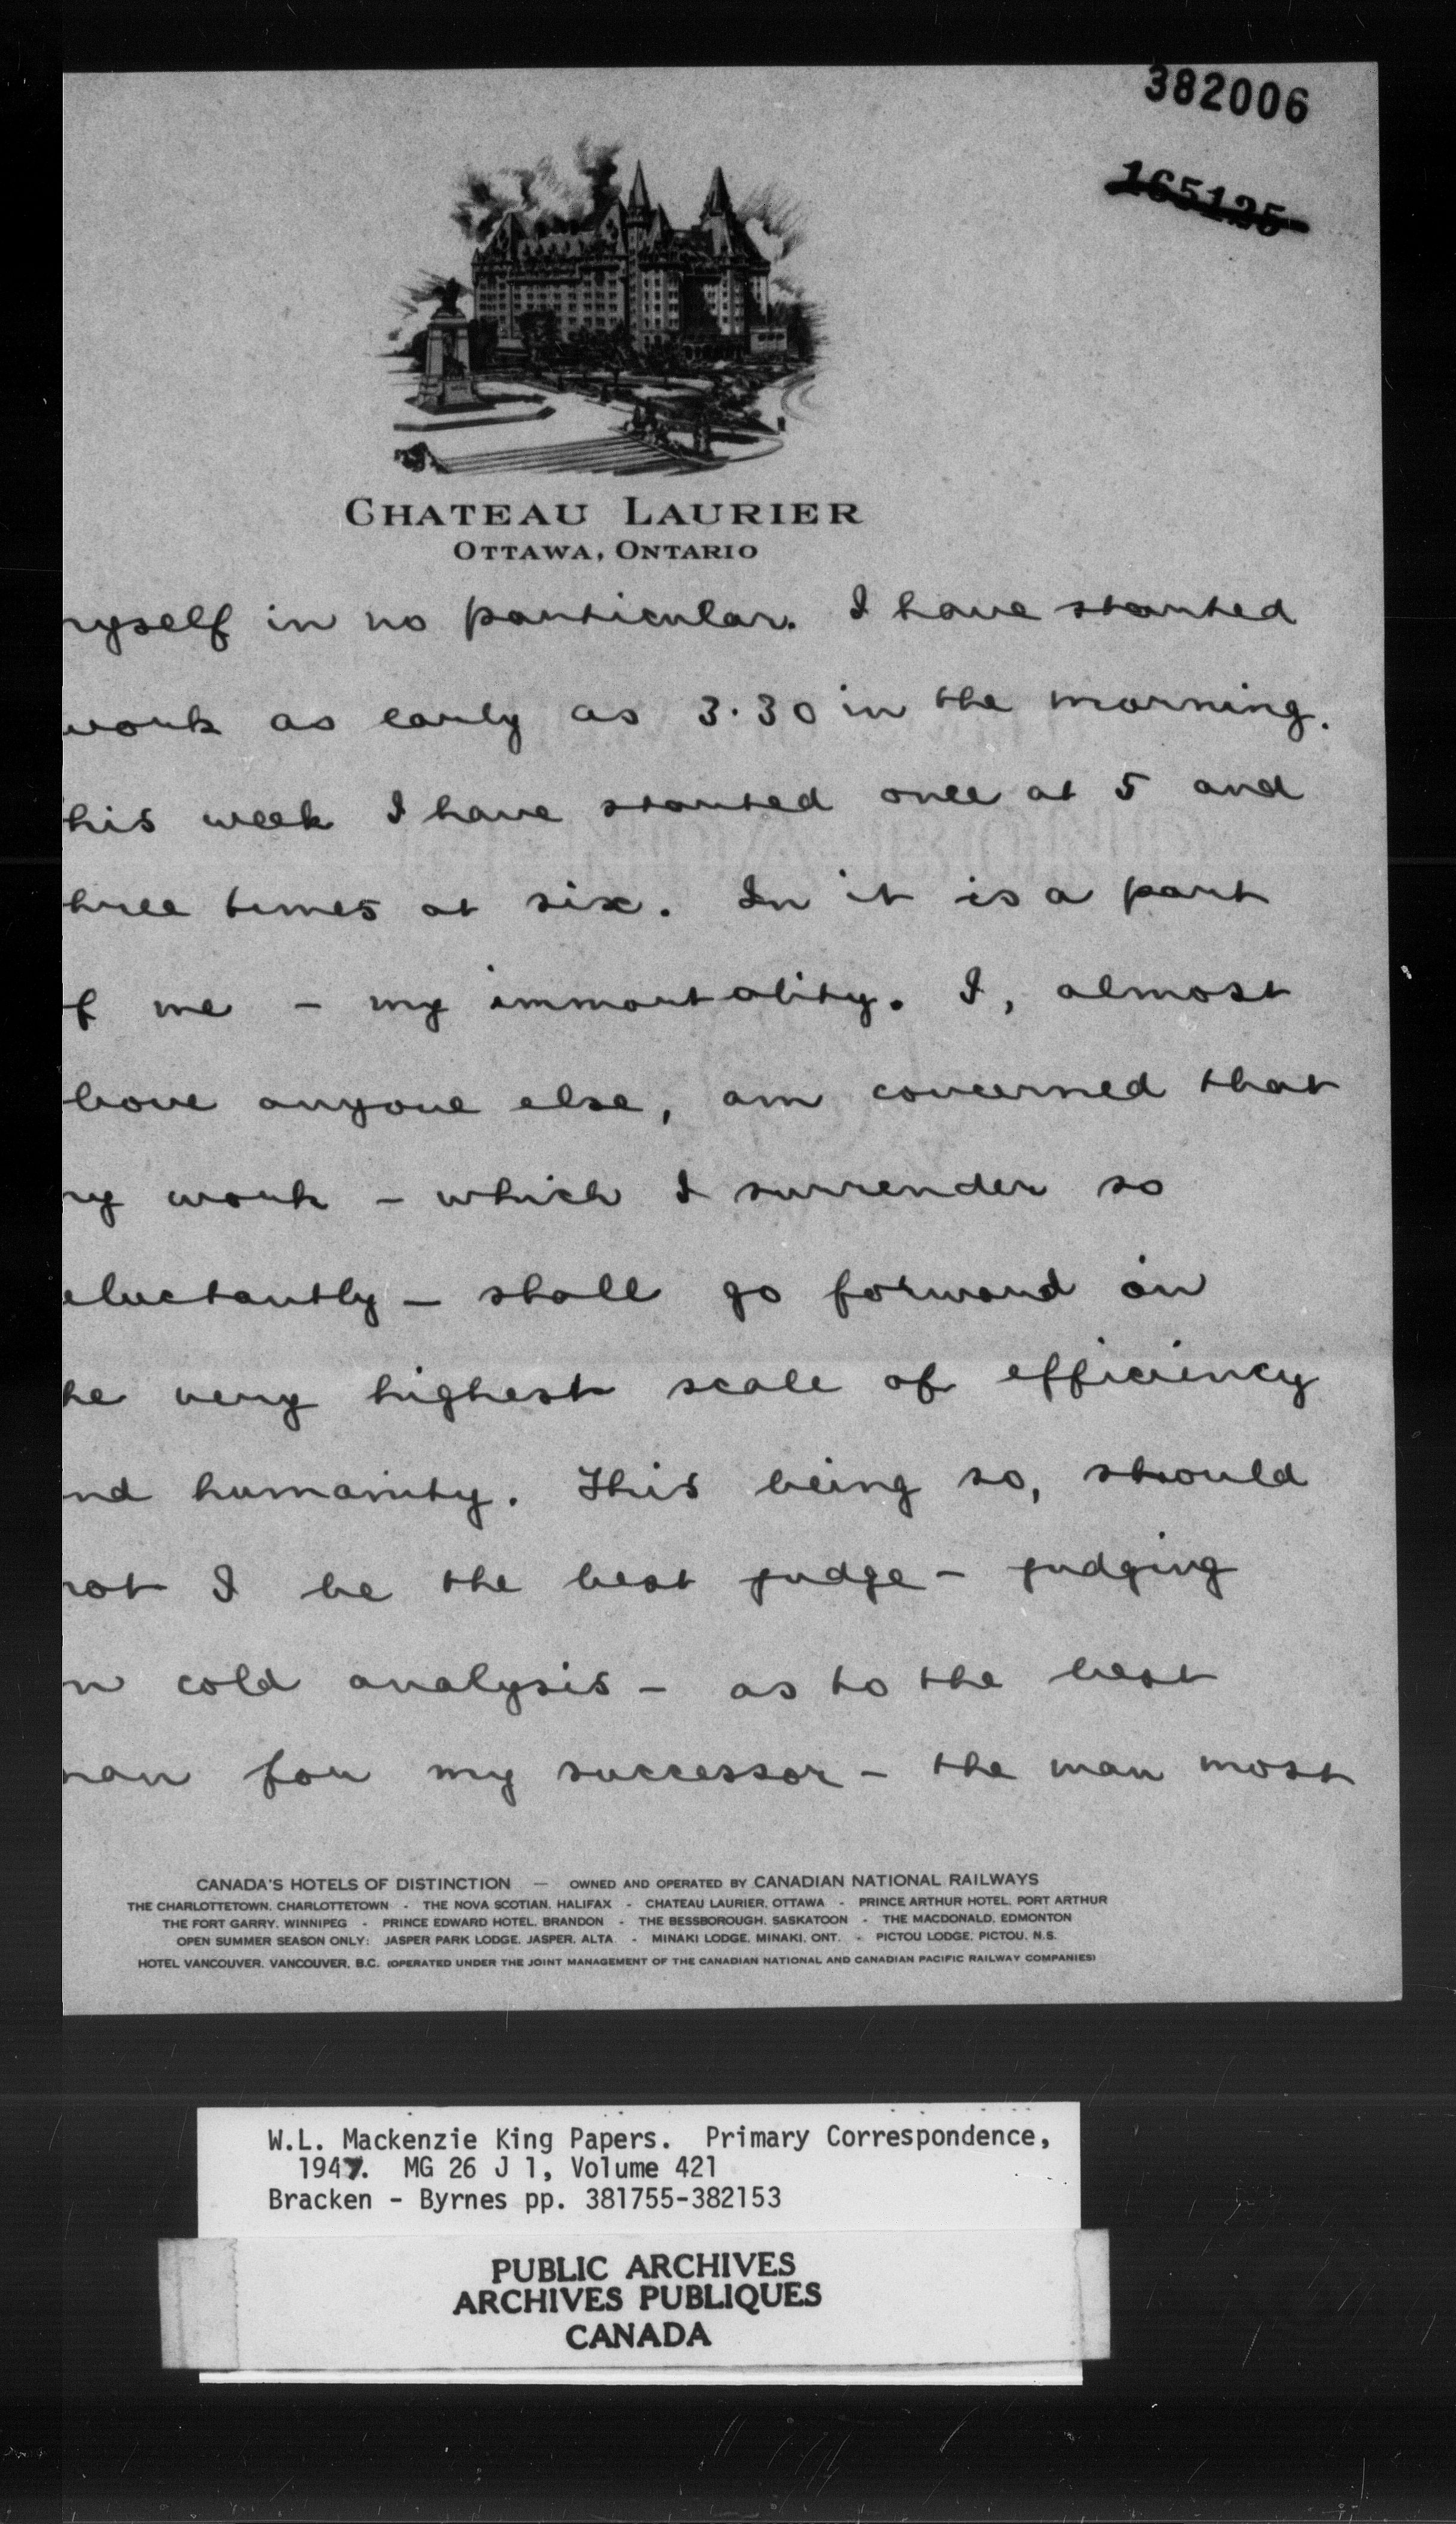 382006
165125
CHATEAU LAURIER
OTTAWA, ONTARIO
myself in no particular. I have started
work as early as 3.30 in the morning.
this week I have started once at 5 and
three times at six. In it is a part
of me – my immortality. I, almost
bove anyone else, am concerned that
my work – which I surrender so
eluctantly – shall go forward on
he very highest scale of efficiency
nd humanity. This being so, should
not I be the best judge – judging
n cold analysis – as to the best
man for my successor – the man most
CANADA'S HOTELS OF DISTINCTION — OWNED AND OPERATED BY CANADIAN NATIONAL RAILWAYS
THE CHARLOTTETOWN, CHARLOTTETOWN - THE NOVA SCOTIAN, HALIFAX - CHATEAU LAURIER, OTTAWA - PRINCE ARTHUR HOTEL, PORT ARTHUR
THE FORT GARRY, WINNIPEG - PRINCE EDWARD HOTEL, BRANDON - THE BESSBOROUGH, SASKATOON - THE MACDONALD, EDMONTON
OPEN SUMMER SEASON ONLY: JASPER PARK LODGE, JASPER, ALTA. - MINAKI LODGE, MINAKI, ONT. - PICTOU LODGE, PICTOU, N.S.
HOTEL VANCOUVER, VANCOUVER, B.C. (OPERATED UNDER THE JOINT MANAGEMENT OF THE CANADIAN NATIONAL AND CANADIAN PACIFIC RAILWAY COMPANIES)
W.L. Mackenzie King Papers. Primary Correspondence,
1947. MG 26 J 1, Volume 421
Bracken - Byrnes pp. 381755-382153
PUBLIC ARCHIVES
ARCHIVES PUBLIQUES
CANADA